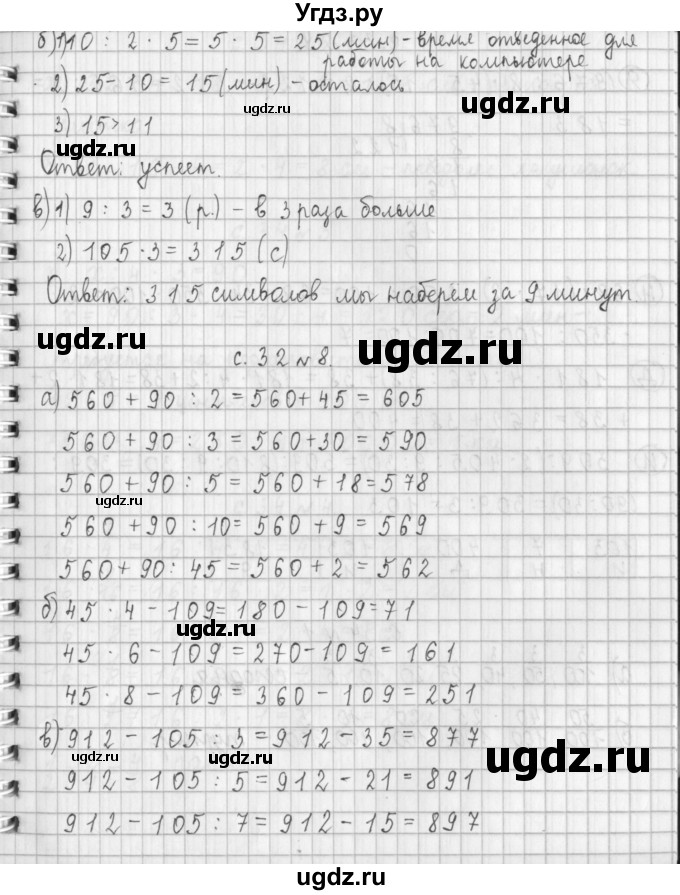 Угдз.ру
б) 1) 10 : 2 · 5 = 5 · 5 = 25 (мин) - время отведенное для
работы на компьютере
2) 25 - 10 = 15 (мин) - осталось
ugdz.ru
ugdz.ru
3) 15 > 11
ugdz.ru
Ответ: успеет.
в) 1) 9 : 3 = 3 (р.) - в 3 раза больше
2) 105 · 3 = 315 (с)
Ответ: 315 символов мы наберем за 9 минут
ugdz.ru
ugdz.ru
с. 32 № 8.
а) 560 + 90 : 2 = 560 + 45 = 605
560 + 90 : 3 = 560 + 30 = 590
560 + 90 : 5 = 560 + 18 = 578
ugdz.ru
560 + 90 : 10 = 560 + 9 = 569
560 + 90 : 45 = 560 + 2 = 562
б) 45 · 4 - 109 = 180 - 109 = 71
ugdz.ru
45 · 6 - 109 = 270 - 109 = 161
45 · 8 - 109 = 360 - 109 = 251
в) 912 - 105 : 3 = 912 - 35 = 877
ugdz.ru
ugdz.ru
ugdz.ru
912 - 105 : 5 = 912 - 21 = 891
912 - 105 : 7 = 912 - 15 = 897
ugdz.ru